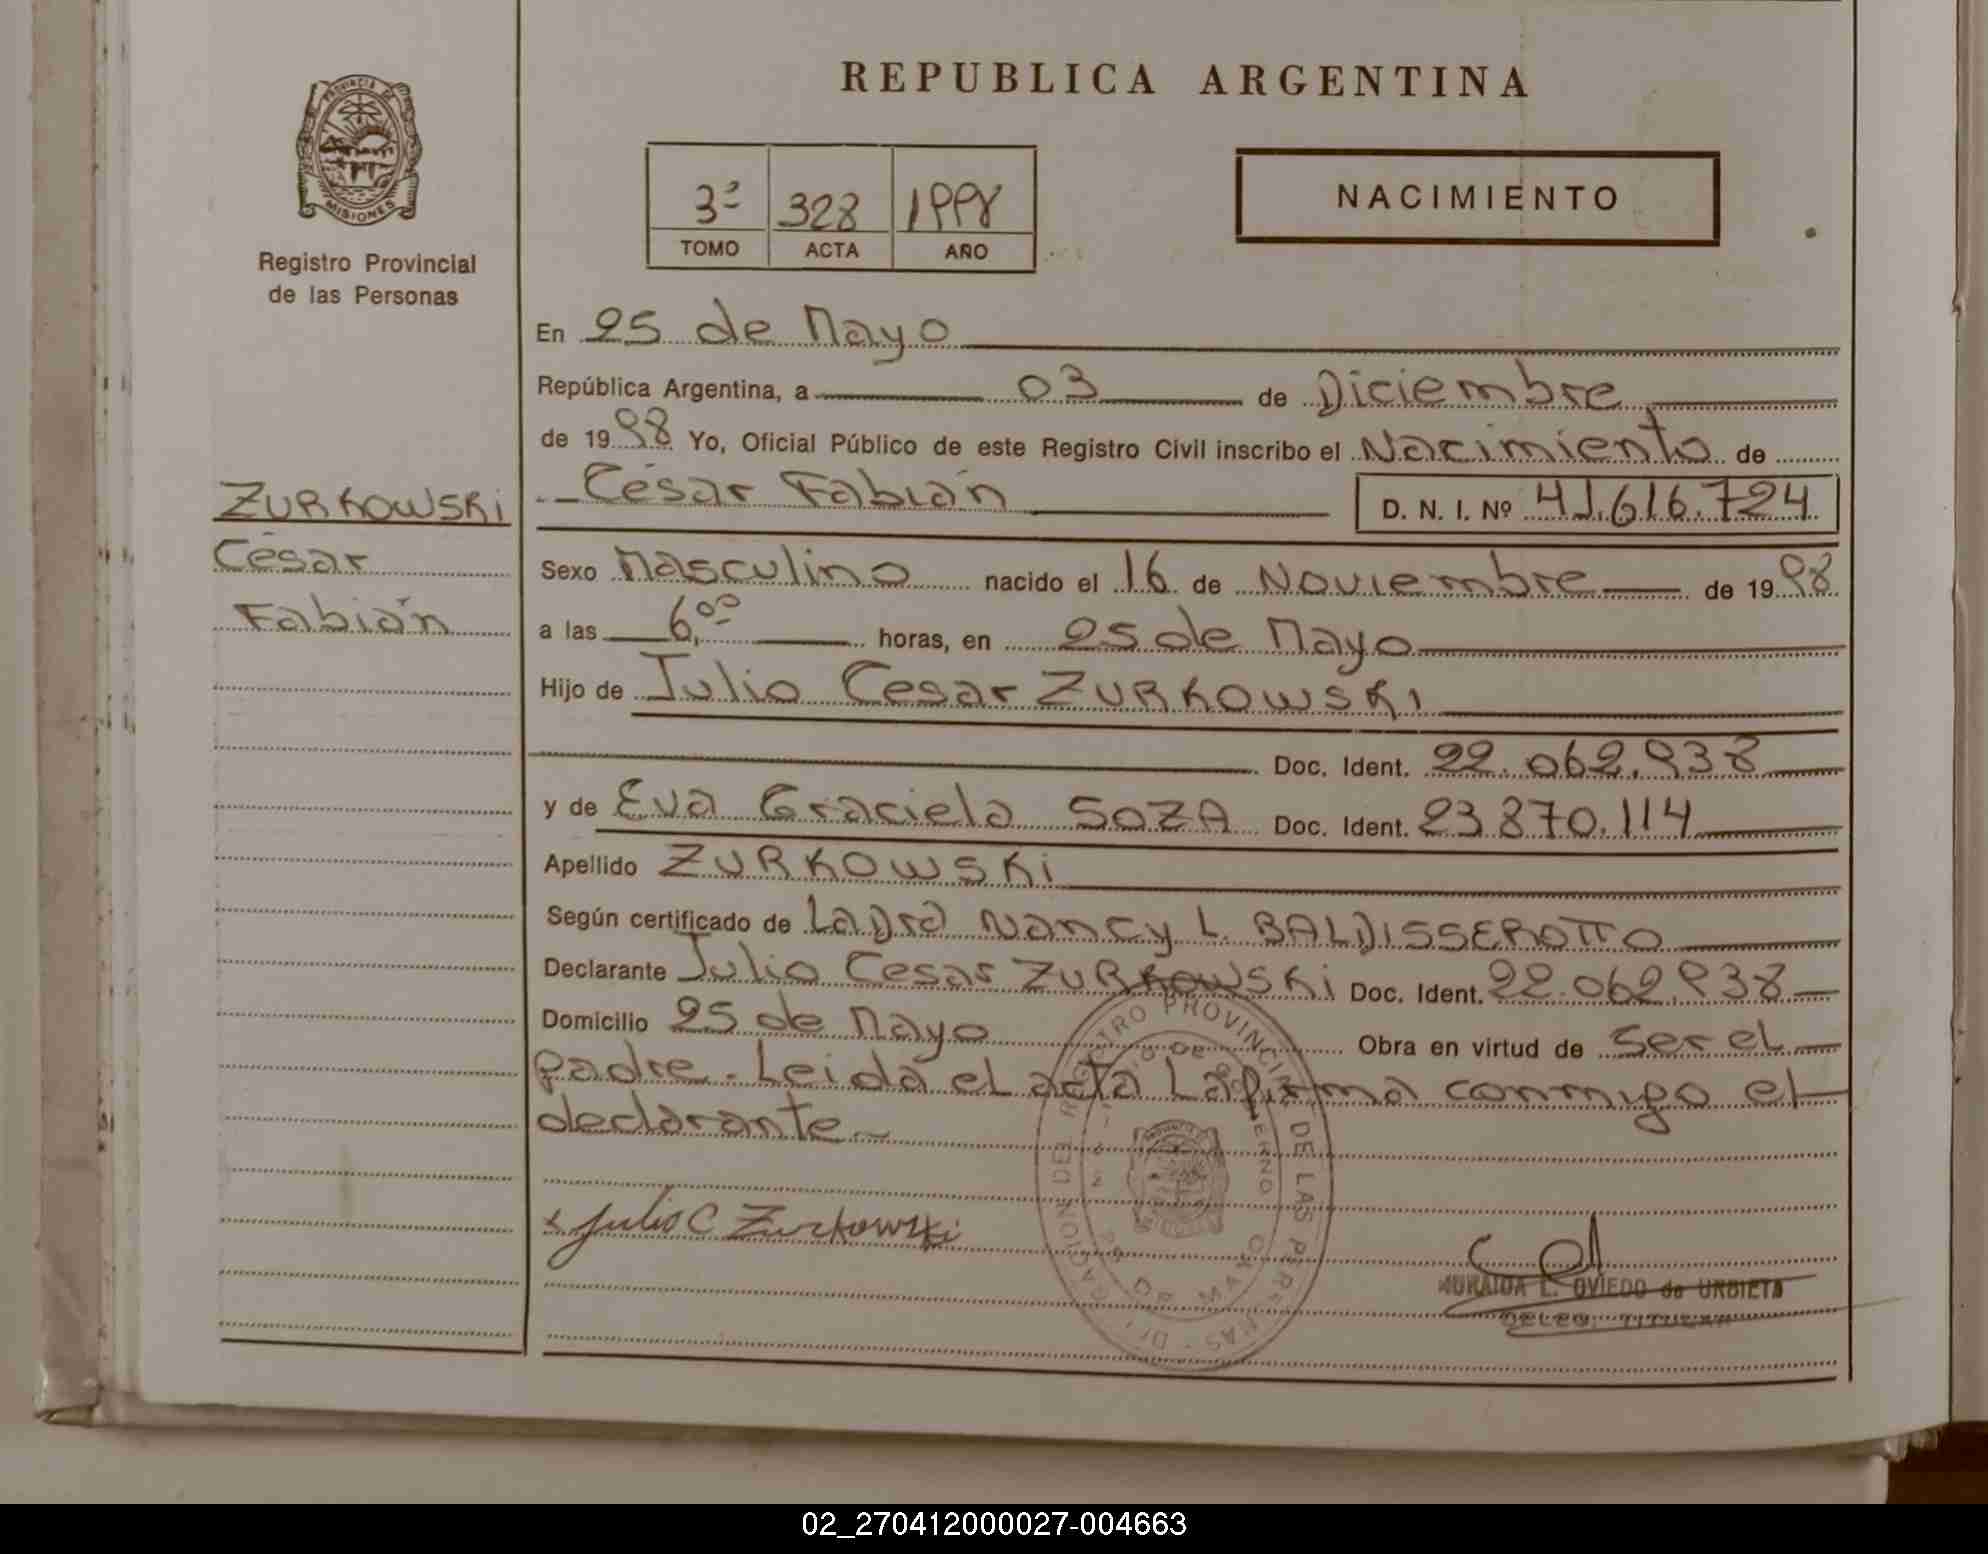 REPUBLICA ARGENTINA
PROVINCIA DE
MISIONES
Registro Provincial
de las Personas
3º 328 1998
TOMO ACTA AÑO
NACIMIENTO
En 25 de Mayo
República Argentina, a 03 de Diciembre
de 1998 Yo, Oficial Público de este Registro Civil inscribo el Nacimiento de
César Fabián D. N. I. Nº 41.616.724
ZURKOWSKi
César
Fabián
Sexo Masculino nacido el 16 de Noviembre de 1998
a las 6,00 horas, en 25 de Mayo
Hijo de Julio Cesar ZURKOWSKI
Doc. Ident. 22.062.938
y de Eva Graciela SOZA Doc. Ident. 23.870.114
Apellido ZURKOWSKi
Según certificado de La Dra Nancy L. BALDISSEROTTO
Declarante Julio Cesar ZURKOWSKi Doc. Ident. 22.062.938
Domicilio 25 de Mayo Obra en virtud de ser el
padre. Leida el acta La firma conmigo el
declarante
x Julio C Zurkowski
DELEGACION DEL REGISTRO PROVINCIAL DE LAS PERSONAS
25 DE MAYO
L. OVIEDO de URBIETA
DELEG. TITULAR
02_270412000027-004663